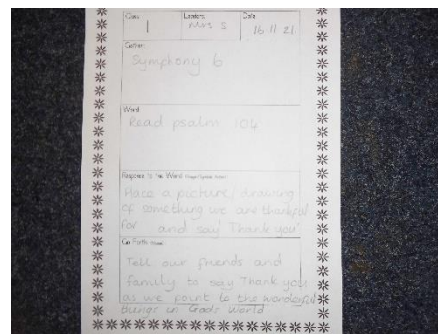 Class
1
Leaders
Mrs S
Date
16.11.21
Gather
Symphony 6
Word
Read psalm 104
Response to the Word
Place a picture, drawing
of something we are thankful
for and say 'Thank you'
Go Forth
Tell our friends and
family to say Thank you
as we point to the wonderful
things in Gods World